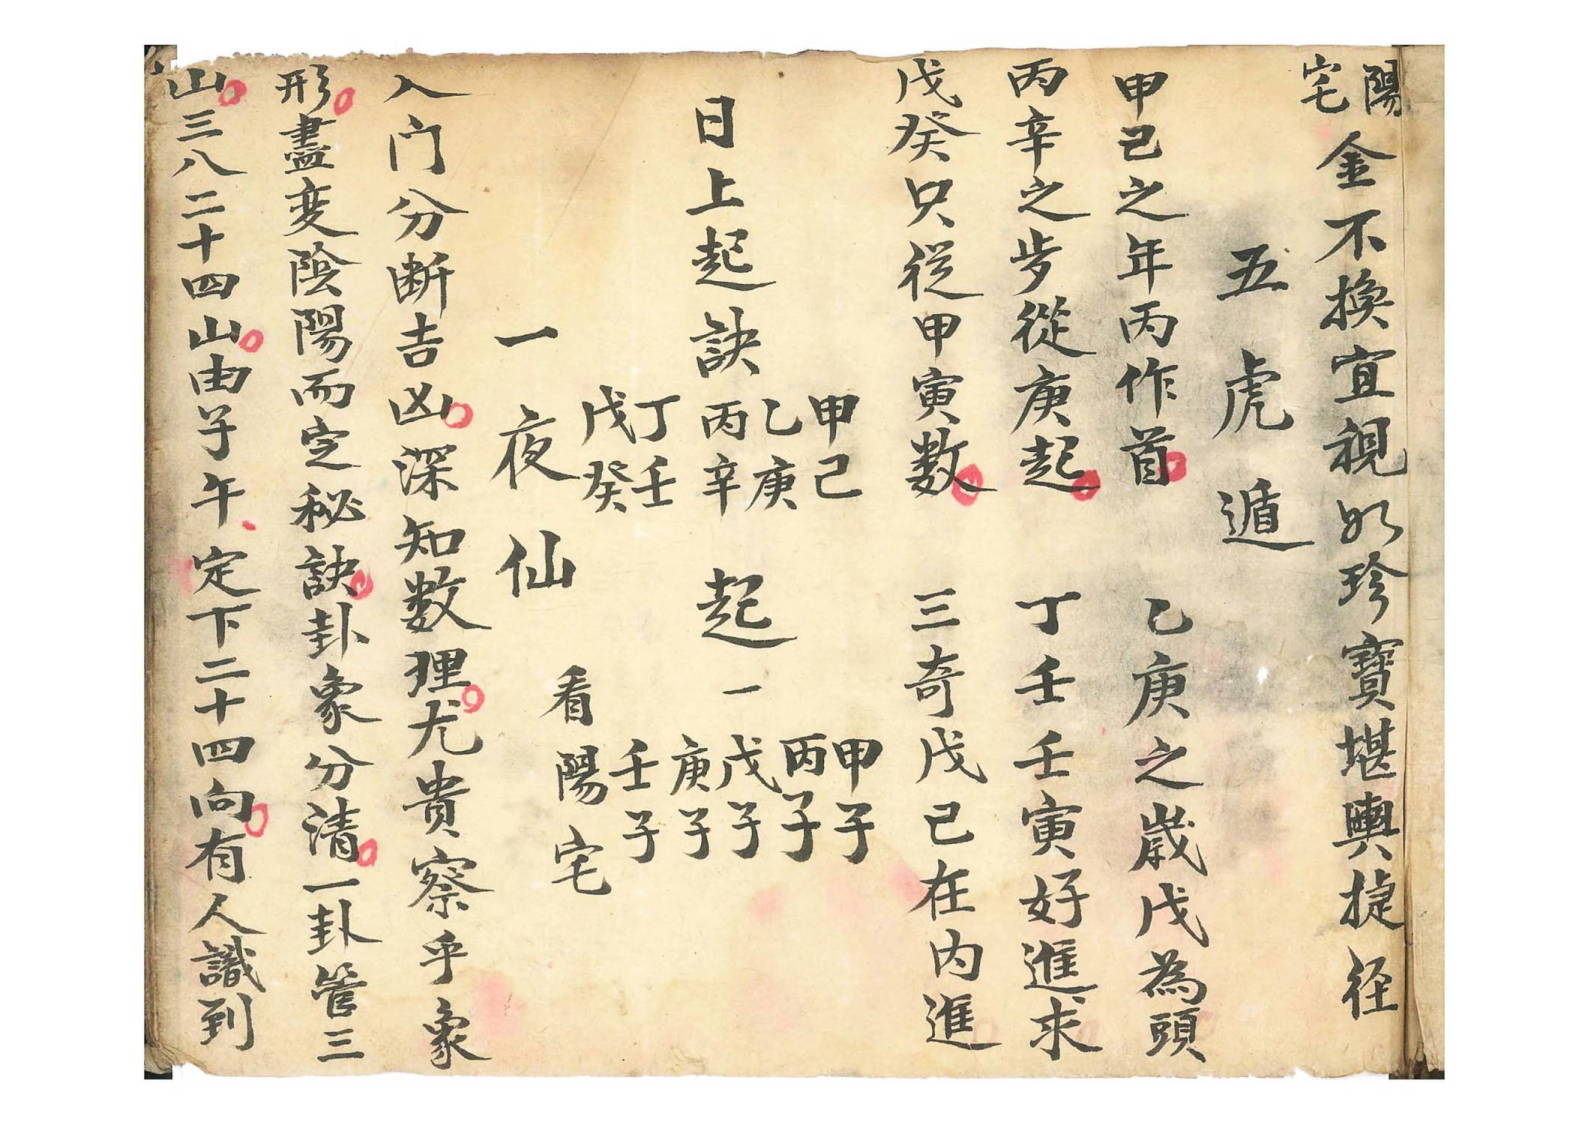 陽宅金不換宜視如珍寶堪輿捷径
五虎遁
甲己之年丙作首 乙庚之歲戊為頭
丙辛之步從庚起 丁壬壬寅好進求
戊癸只從甲寅數 三奇戊己在内進
日上起訣 甲己 乙庚 丙辛 丁壬 戊癸 起 一 甲子 丙子 戊子 庚子 壬子
一夜仙 看陽宅
入门分断吉凶深知数理尤貴察乎象
形盡変陰陽而定秘訣卦象分清一卦管三
山三八二十四山由子午定下二十四向有人識到